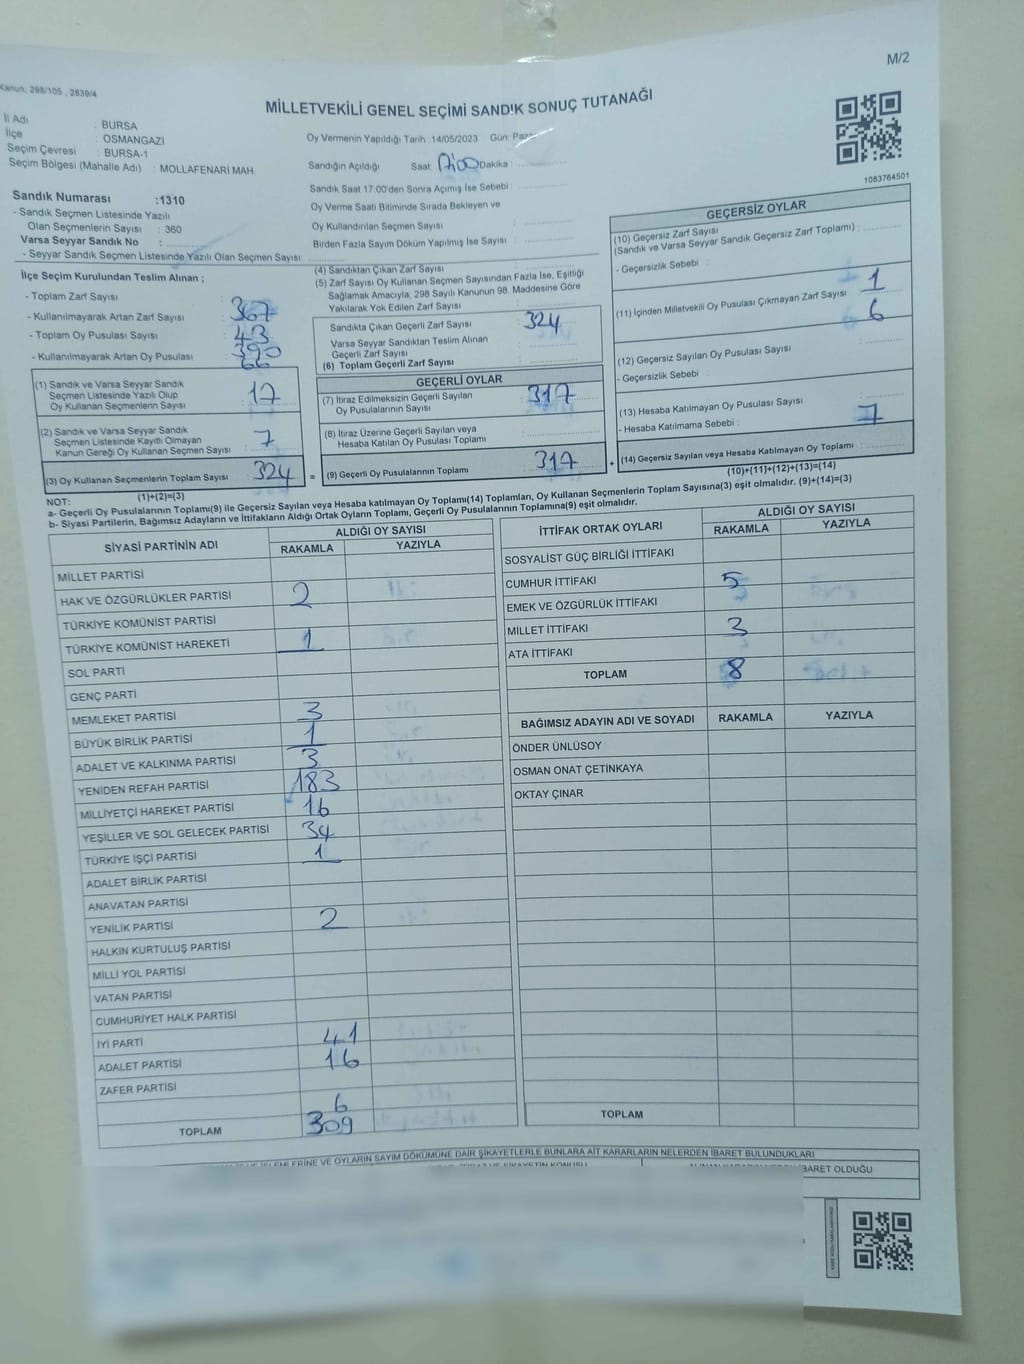 M/2
Kanun: 298/105 , 2839/4
MİLLETVEKİLİ GENEL SEÇİMİ SANDIK SONUÇ TUTANAĞI
İl Adı : BURSA
İlçe : OSMANGAZİ
Seçim Çevresi : BURSA-1
Seçim Bölgesi (Mahalle Adı) : MOLLAFENARI MAH.
Sandık Numarası :1310
- Sandık Seçmen Listesinde Yazılı
Olan Seçmenlerin Sayısı : 360
Varsa Seyyar Sandık No :
- Seyyar Sandık Seçmen Listesinde Yazılı Olan Seçmen Sayısı:
Oy Vermenin Yapıldığı Tarih :14/05/2023 Gün:
Sandığın Açıldığı Saat: Dakika :
Sandık Saat 17:00'den Sonra Açımış İse Sebebi :
Oy Verme Saati Bitiminde Sırada Bekleyen ve
Oy Kullandırılan Seçmen Sayısı :
Birden Fazla Sayım Döküm Yapılmış İse Sayısı :
1083764501
İlçe Seçim Kurulundan Teslim Alınan ;
- Toplam Zarf Sayısı : 367
- Kullanılmayarak Artan Zarf Sayısı : 43
- Toplam Oy Pusulası Sayısı : 390
- Kullanılmayarak Artan Oy Pusulası : 66
(1) Sandık ve Varsa Seyyar Sandık
Seçmen Listesinde Yazılı Olup
Oy Kullanan Seçmenlerin Sayısı : 17
(2) Sandık ve Varsa Seyyar Sandık
Seçmen Listesinde Kayıtlı Olmayan
Kanun Gereği Oy Kullanan Seçmen Sayısı : 7
(3) Oy Kullanan Seçmenlerin Toplam Sayısı : 324
(1)+(2)=(3)
(4) Sandıktan Çıkan Zarf Sayısı
(5) Zarf Sayısı Oy Kullanan Seçmen Sayısından Fazla İse, Eşitliği
Sağlamak Amacıyla; 298 Sayılı Kanunun 98. Maddesine Göre
Yakılarak Yok Edilen Zarf Sayısı :
Sandıkta Çıkan Geçerli Zarf Sayısı : 324
Varsa Seyyar Sandıktan Teslim Alınan
Geçerli Zarf Sayısı :
(6) Toplam Geçerli Zarf Sayısı :
GEÇERLİ OYLAR
(7) İtiraz Edilmeksizin Geçerli Sayılan
Oy Pusulalarının Sayısı : 317
(8) İtiraz Üzerine Geçerli Sayılan veya
Hesaba Katılan Oy Pusulası Toplamı :
= (9) Geçerli Oy Pusulalarının Toplamı : 317 +
GEÇERSİZ OYLAR
(10) Geçersiz Zarf Sayısı
(Sandık ve Varsa Seyyar Sandık Geçersiz Zarf Toplamı) :
- Geçersizlik Sebebi : 1
(11) İçinden Milletvekili Oy Pusulası Çıkmayan Zarf Sayısı : 6
(12) Geçersiz Sayılan Oy Pusulası Sayısı
- Geçersizlik Sebebi :
(13) Hesaba Katılmayan Oy Pusulası Sayısı
- Hesaba Katılmama Sebebi : 7
(14) Geçersiz Sayılan veya Hesaba Katılmayan Oy Toplamı :
(10)+(11)+(12)+(13)=(14)
NOT:
a- Geçerli Oy Pusulalarının Toplamı(9) ile Geçersiz Sayılan veya Hesaba katılmayan Oy Toplamı(14) Toplamları, Oy Kullanan Seçmenlerin Toplam Sayısına(3) eşit olmalıdır. (9)+(14)=(3)
b- Siyasi Partilerin, Bağımsız Adayların ve İttifakların Aldığı Ortak Oyların Toplamı, Geçerli Oy Pusulalarının Toplamına(9) eşit olmalıdır.
SİYASİ PARTİNİN ADI
ALDIĞI OY SAYISI
RAKAMLA YAZIYLA
MİLLET PARTİSİ
HAK VE ÖZGÜRLÜKLER PARTİSİ 2
TÜRKİYE KOMÜNİST PARTİSİ
TÜRKİYE KOMÜNİST HAREKETİ 1
SOL PARTİ
GENÇ PARTİ
MEMLEKET PARTİSİ 3
BÜYÜK BİRLİK PARTİSİ 1
ADALET VE KALKINMA PARTİSİ 3
YENİDEN REFAH PARTİSİ 183
MİLLİYETÇİ HAREKET PARTİSİ 16
YEŞİLLER VE SOL GELECEK PARTİSİ 34
TÜRKİYE İŞÇİ PARTİSİ 1
ADALET BİRLİK PARTİSİ
ANAVATAN PARTİSİ
YENİLİK PARTİSİ 2
HALKIN KURTULUŞ PARTİSİ
MİLLİ YOL PARTİSİ
VATAN PARTİSİ
CUMHURİYET HALK PARTİSİ
İYİ PARTİ 41
ADALET PARTİSİ 16
ZAFER PARTİSİ
6
TOPLAM 309
İTTİFAK ORTAK OYLARI
ALDIĞI OY SAYISI
RAKAMLA YAZIYLA
SOSYALİST GÜÇ BİRLİĞİ İTTİFAKI
CUMHUR İTTİFAKI 5
EMEK VE ÖZGÜRLÜK İTTİFAKI
MİLLET İTTİFAKI 3
ATA İTTİFAKI
TOPLAM 8
BAĞIMSIZ ADAYIN ADI VE SOYADI RAKAMLA YAZIYLA
ÖNDER ÜNLÜSOY
OSMAN ONAT ÇETİNKAYA
OKTAY ÇINAR
TOPLAM
VE OYLARIN SAYIM DÖKÜMÜNE DAİR ŞİKAYETLERLE BUNLARA AİT KARARLARIN NELERDEN İBARET BULUNDUKLARI
OLDUĞU